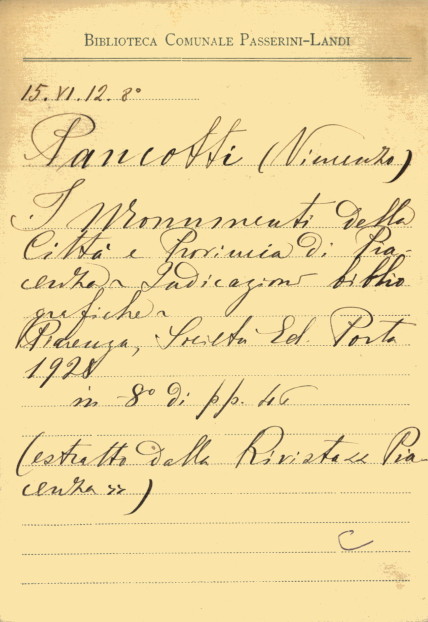 BIBLIOTECA COMUNALE PASSERINI-LANDI
15. VI. 12. 8°
Pancotti (Vincenzo)
I Monumenti della
Città e Provincia di Pia-
cenza - Indicazioni biblio
grafiche -
Piacenza, Società Ed. Porta
in -8° di pp. 46
(estratto dalla Rivista << Pia-
cenza >> )
C